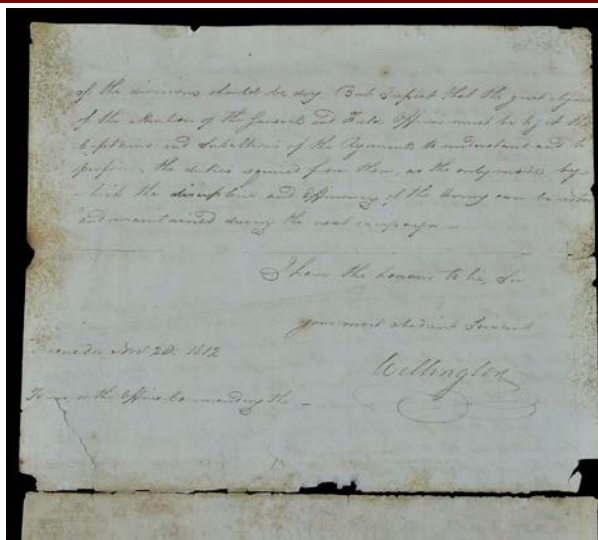 of the divisions should be dry But I repeat that the great object
of the attention of the General and Field Officers must be to get the
Captains and Subalterns of the Regiments to understand and to
perform the duties required from them, as the only mode by
which the discipline and efficiency of the Army can be
and maintained during the next campaign
I have the honour to be, Sir
your most obedient Servant
Nov 28. 1812
Wellington
Officer Commanding the